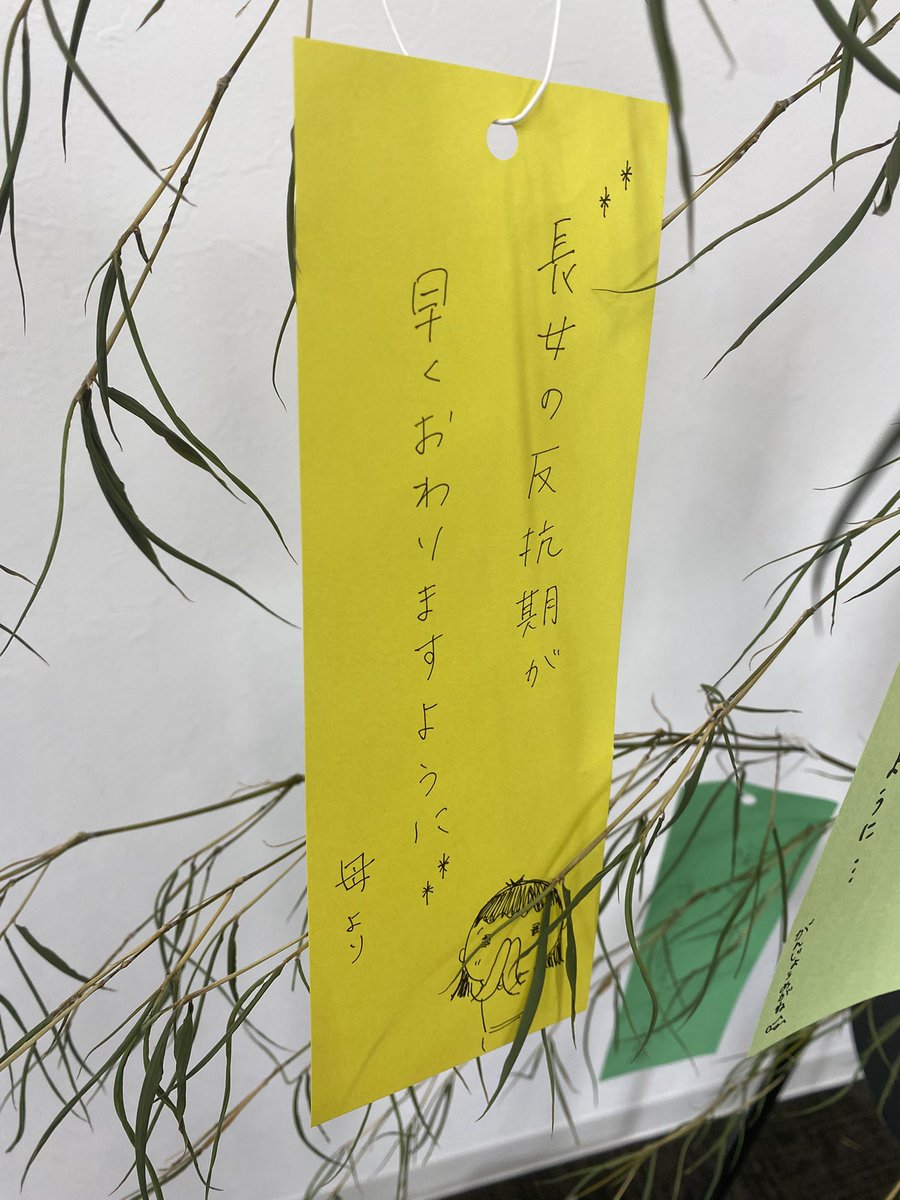 **長女の反抗期が
早くおわりますように**
母より
ように…